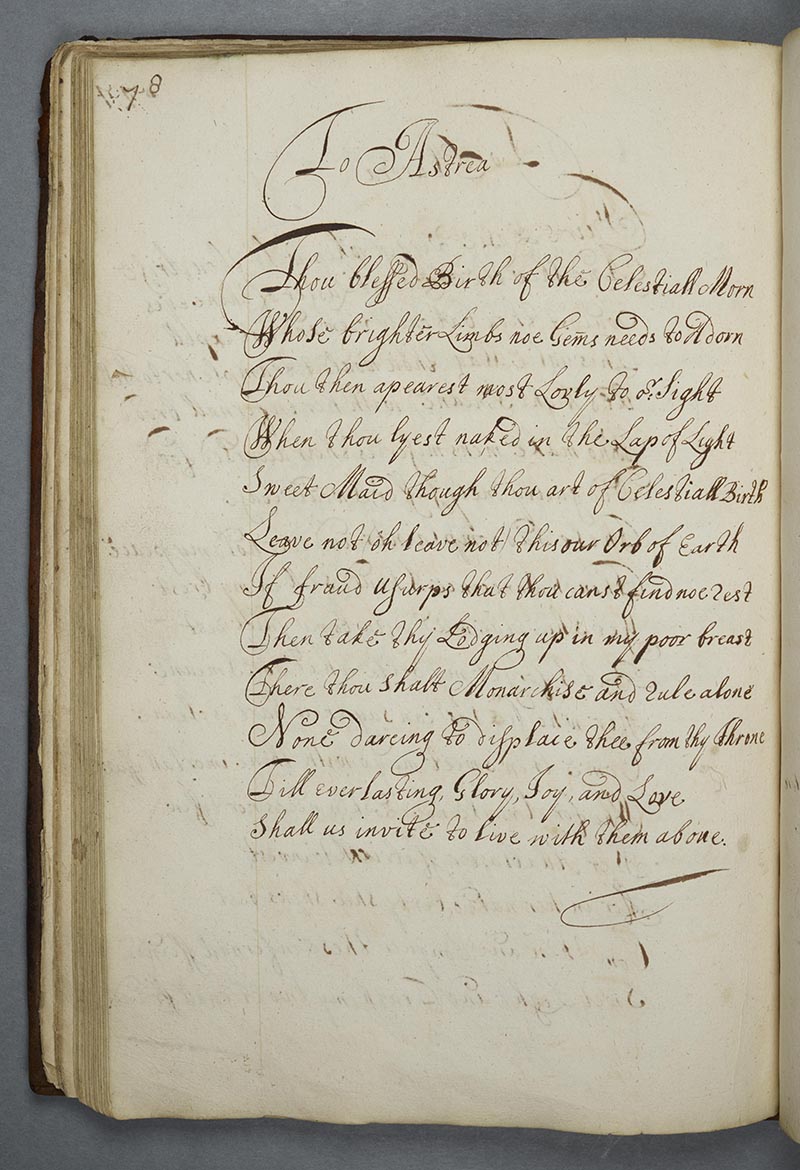 78
To Astrea
Thou blessed Birth of the Celestiall Morn
Whose brighter Limbs noe Gem̄s needs to Adorn
Thou then apearest most Lovly to oʳ Sight
When thou lyest naked in the Lap of Light
Sweet Maid though thou art of Celestiall Birth
Leave not oh leave not this our Orb of Earth
If fraud usurps that thou canst find noe rest
Then take thy Lodging up in my poor breast
There thou shalt Monarchise and rule alone
None dareing to displace thee from thy Throne
Till everlasting, Glory, Joy, and Love
Shall us invite to live with them above.